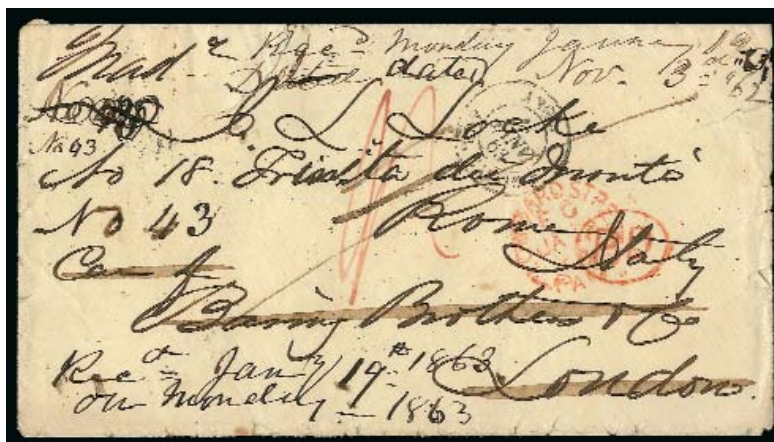 Mad. Rec.d Monday January 19
dated Nov. 3 62
No 43
L Locke
No 18. Trinita dei Monti
No 43 Rome
Italy
Care of
Baring Brothers & Co
London.
Rec.d Jany 19th 1863
on Monday - 1863
LOMBARD STREET
PAID